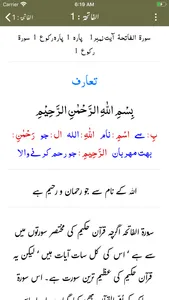 6:19 AM
الفاتحة : 1
الفاتحة : 1
سورۃ الفاتحة آیت نمبر 1 پارہ 1 پارہ رکوع 1 سورۃ
رکوع 1
تعارف
بِسْمِ اللهِ الرَّحْمٰنِ الرَّحِيْمِ
بِ: سے اسْمِ: نام اللّٰهِ: اللہ ال: جو رَحْمٰنِ:
بہت مہربان الرَّحِيْمِ: جو رحم کرنے والا
اللہ کے نام سے جو رحمان و رحیم ہے
سورۃ الفاتحہ اگرچہ قرآن حکیم کی مختصر سورتوں میں
سے ہے ‘ اس کی کل سات آیات ہیں ‘ لیکن یہ
قرآن حکیم کی عظیم ترین سورت ہے۔ اس سورۃ